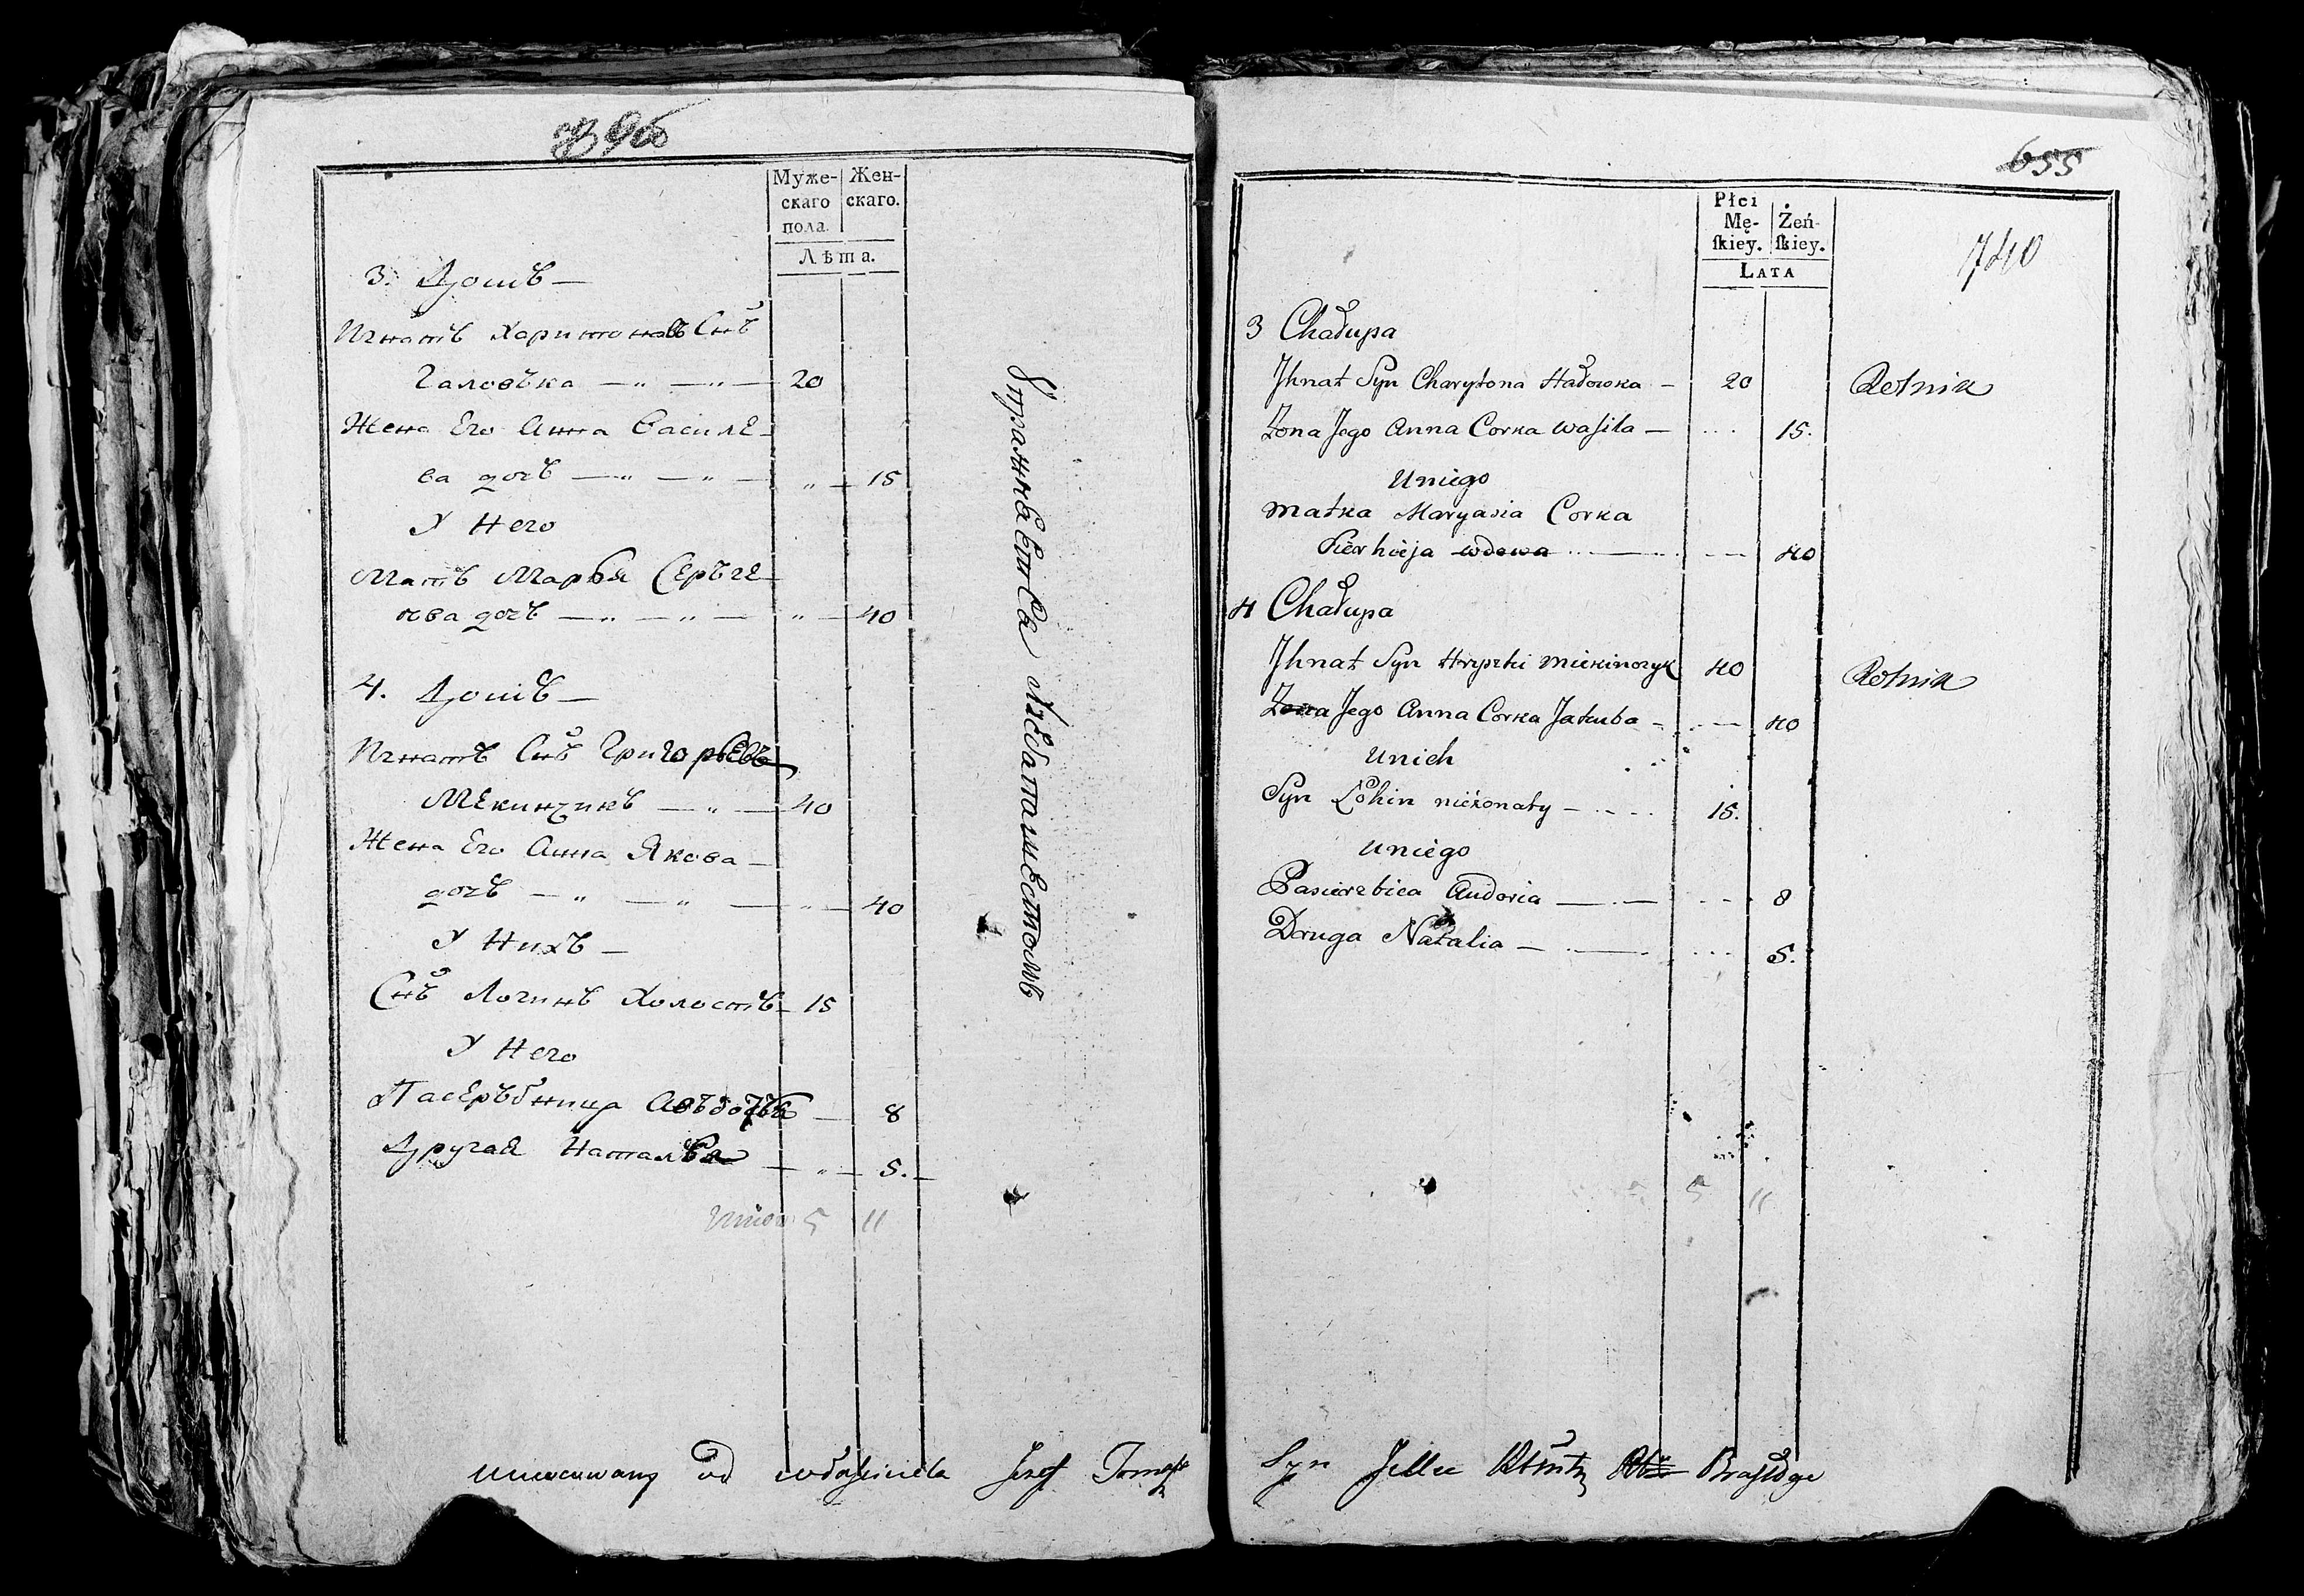 396
Муже-
скаго
пола.
Жен-
скаго.
Лѣта.
3. Домъ —
Игнатъ Харитоновъ Снъ
Галовъка — „ — „ — 20
Жена Его Анна Василе-
ва дочъ — „ — „ — „ — 15
У Него
Матъ Марья Серъге-
ева дочъ — „ — „ — „ — 40
4. Домъ —
Игнатъ Снъ Григорьевъ
Мекинчикъ — „ — 40
Жена Его Анна Якова —
дочъ — „ — „ — „ — 40
У Нихъ —
Снъ Логинъ Холостъ — 15
У Него
Пасеръбница Авъдотья — 8
Другая Наталья — „ — 5. —
5 11
Упражняется Хлебапашествомъ
655
740
Płci
Mę-
ſkiey.
Żeń-
ſkiey.
LATA
3 Chałupa
Jhnat Syn Charytona Hałowka — 20 Rolnik
Żona Jego Anna Corka Waſila — ... 15.
Uniego
Matka Maryasia Corka
Sierhieja wdowa ... — 40
4 Chałupa
Jhnat Syn Hryszki Miekinczyk 40 Rolnik
Żona Jego Anna Corka Jakuba — . — 40
Unich
Syn Łohin nieżonaty — . — .. 15.
Uniego
Pasierzbica Audocia — . — . — . 8
Druga Natalia — . — ... 5.
5 11
od właſciciela Jozef Tomaſz
Syn Jelllec